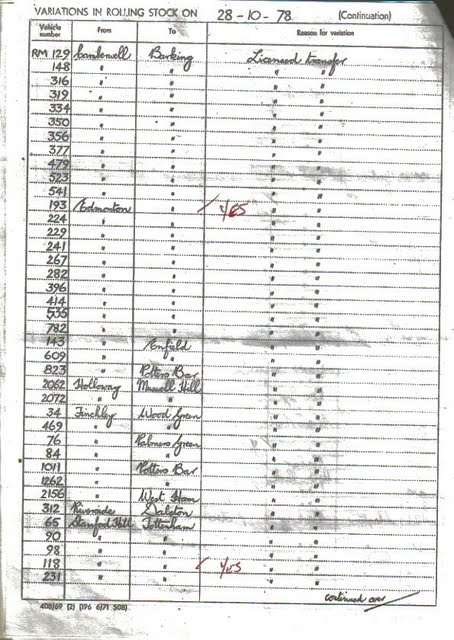 VARIATIONS IN ROLLING STOCK ON 28 - 10 - 78. (Continuation)
Vehicle number From To Reason for variation
RM 129 Camberwell Barking Licensed transfer
148 " " " "
316 " " " "
319 " " " "
334 " " " "
350 " " " "
356 " " " "
377 " " " "
479 " " " "
523 " " " "
541 " " " "
193 Edmonton " / YES " "
224 " " " "
229 " " " "
241 " " " "
267 " " " "
282 " " " "
396 " " " "
414 " " " "
535 " " " "
782 " " " "
143 " Enfield " "
609 " " " "
823 " Potters Bar " "
2062 Holloway Muswell Hill " "
2072 " " " "
34 Finchley Wood Green " "
469 " " " "
76 " Palmers Green " "
84 " " " "
1011 " Potters Bar " "
1262 " " " "
2156 " West Ham " "
312 Riverside Dalston " "
65 Stamford Hill Tottenham " "
90 " " " "
98 " " " "
118 " " / YES " "
231 " " " "
continued over
408/69 (2) (196 6/71 508)